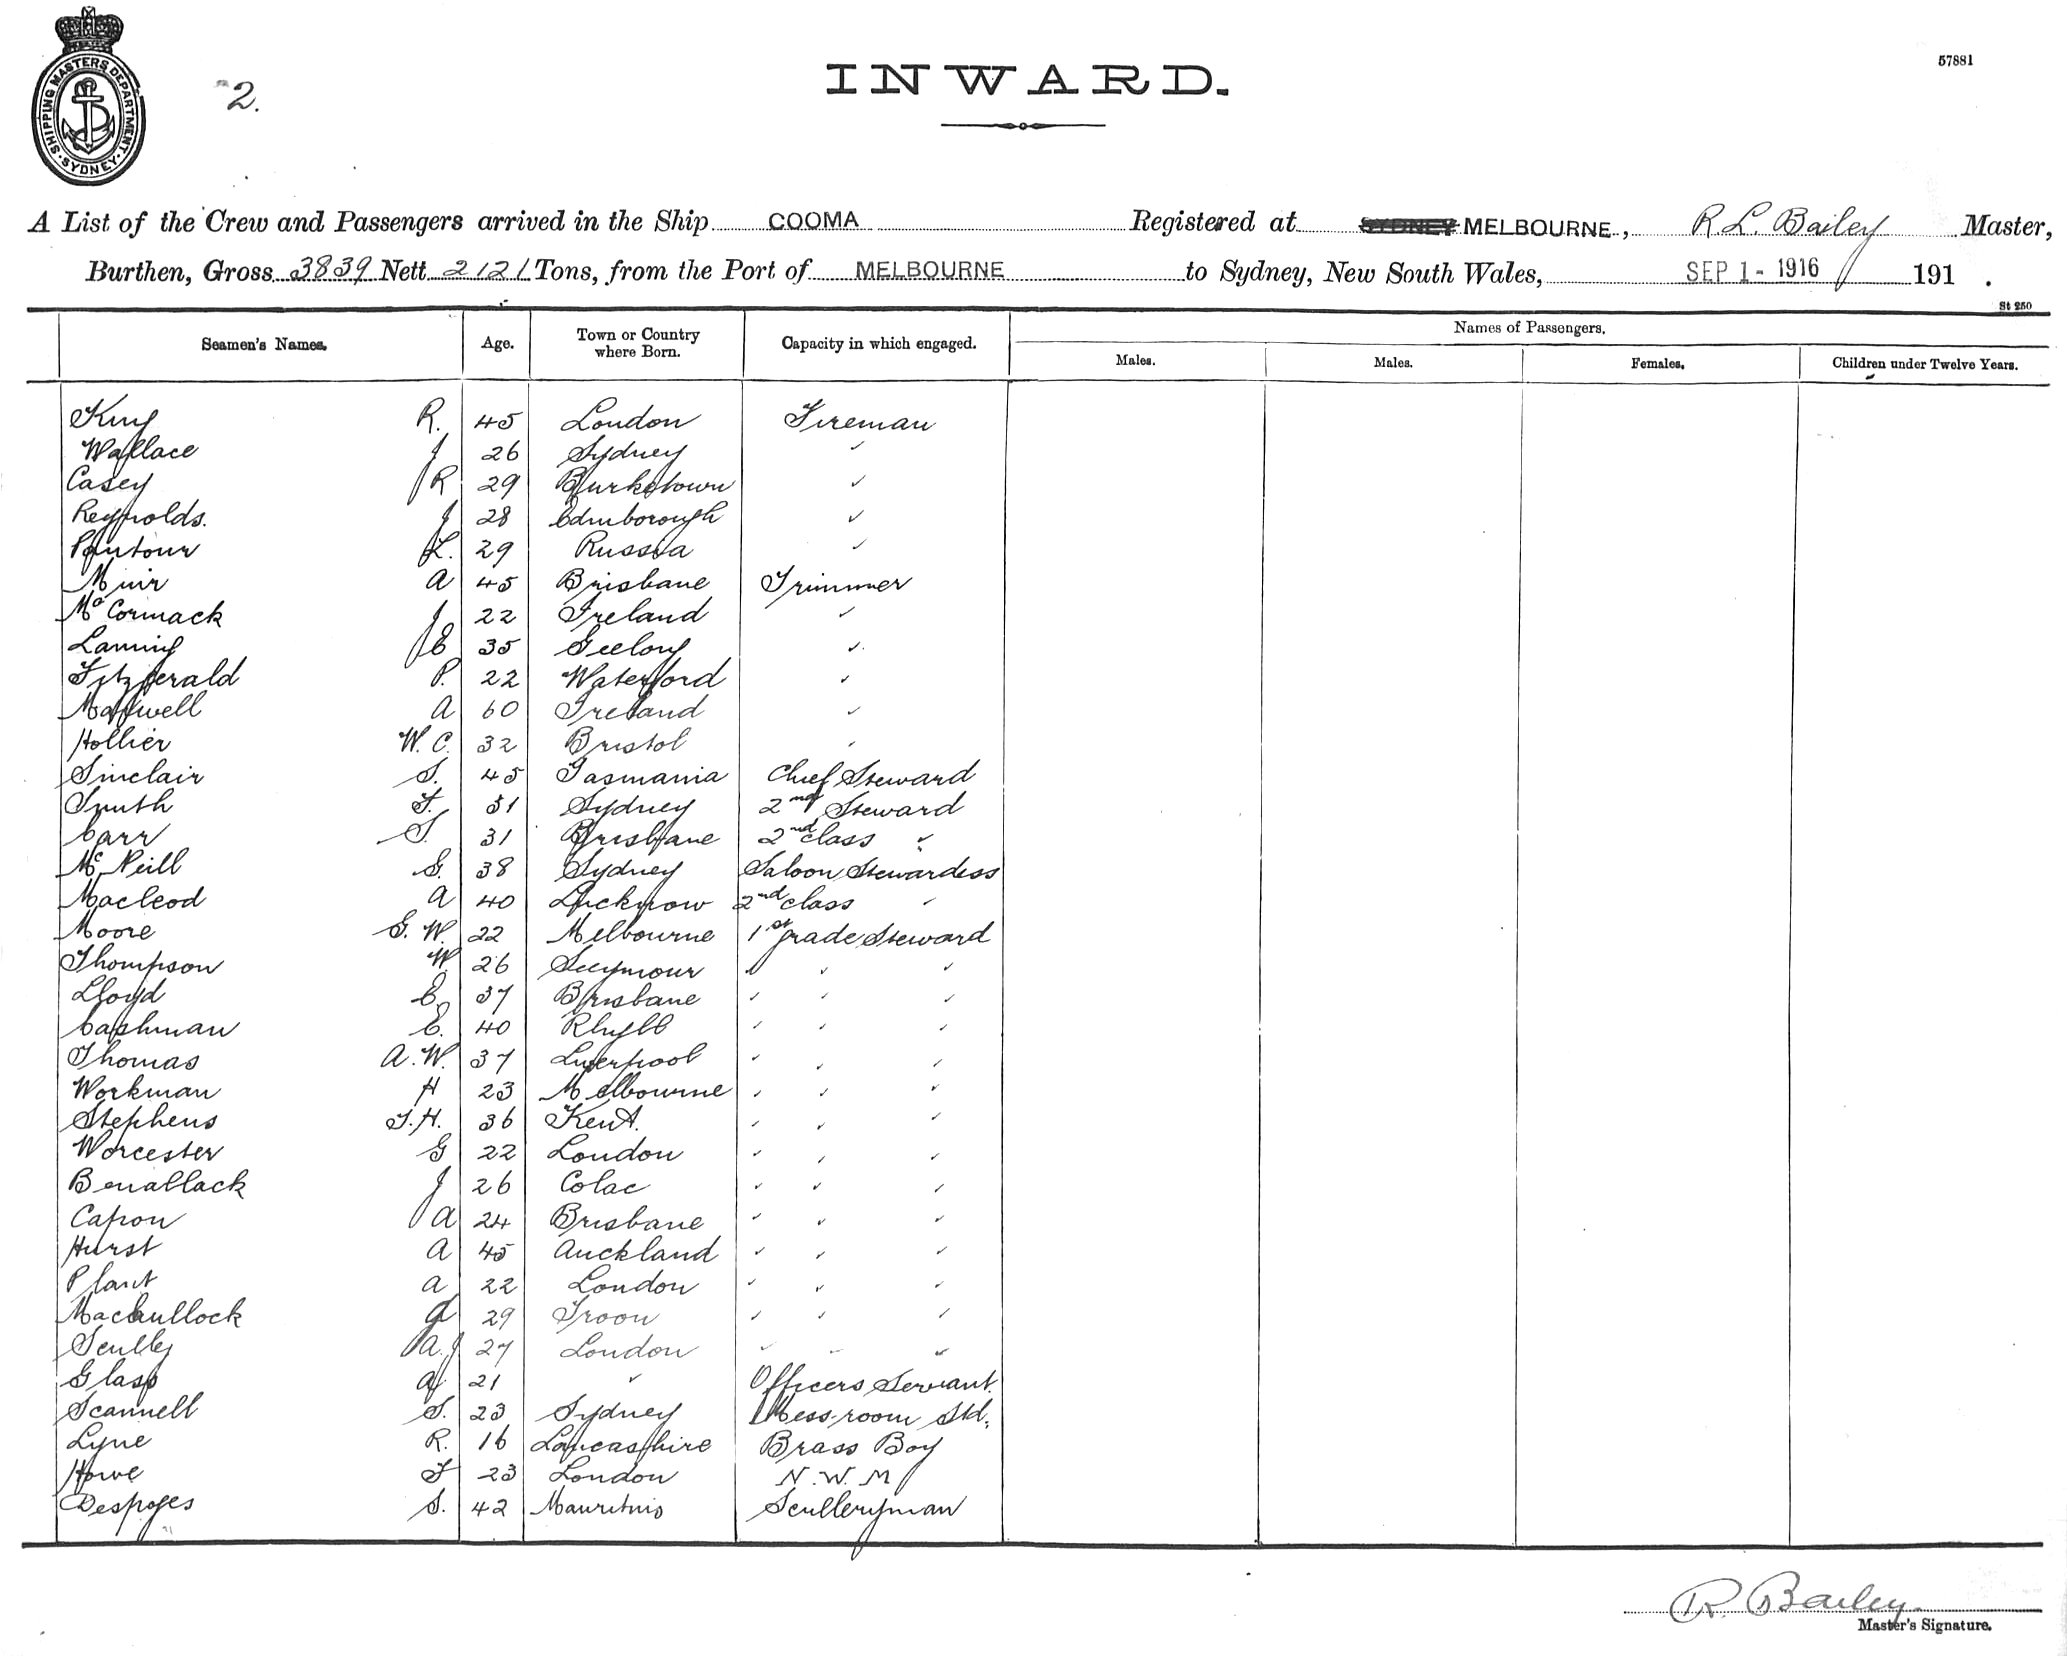 SHIPPING MASTERS DEPARTMENT
SYDNEY
2.
INWARD.
57881
A List of the Crew and Passengers arrived in the Ship COOMA Registered at SYDNEY MELBOURNE, R L. Bailey Master,
Burthen, Gross 3839 Nett 2121 Tons, from the Port of MELBOURNE to Sydney, New South Wales, SEP 1 - 1916 191 .
St 250
Seamen's Names. Age. Town or Country where Born. Capacity in which engaged. Names of Passengers.
Males. Males. Females. Children under Twelve Years.
King R. 45 London Fireman
Wallace J 26 Sydney "
Casey R 29 Burketown "
Reynolds. J 28 Edinborough "
L. 29 Russia "
Muir A 45 Brisbane Trimmer
McCormack J 22 Ireland "
Lanning E 35 Geelong "
Fitzgerald P. 22 Waterford "
Maxwell A 60 Ireland "
Hollier W. C. 32 Bristol "
Sinclair S. 45 Tasmania Chief Steward
Smith F. 31 Sydney 2nd Steward
Carr S. 31 Brisbane 2nd class "
McNeill G. 38 Sydney Saloon Stewardess
Macleod A 40 Lucknow 2nd class "
Moore G. W. 22 Melbourne 1st grade Steward
Thompson W. 26 Seymour " " "
Lloyd C. 37 Brisbane " " "
Cashman E. 40 Rhyll " " "
Thomas A. W. 37 Liverpool " " "
Workman H 23 Melbourne " " "
Stephens T. H. 36 Kent. " " "
Worcester G 22 London " " "
Benallack J 26 Colac " " "
Capron A 24 Brisbane " " "
Hurst A 45 Auckland " " "
Plant A 22 London " " "
Macbullock 29 Troon " " "
Scully A. J 27 London " " "
Glass A 21 " Officers Servant.
Scannell S. 23 Sydney Mess-room Std.
Lyne R. 16 Lancashire Brass Boy
Howe F 23 London N. W. M
Despoges S. 42 Mauritius Sculleryman
R. Bailey.
Master's Signature.